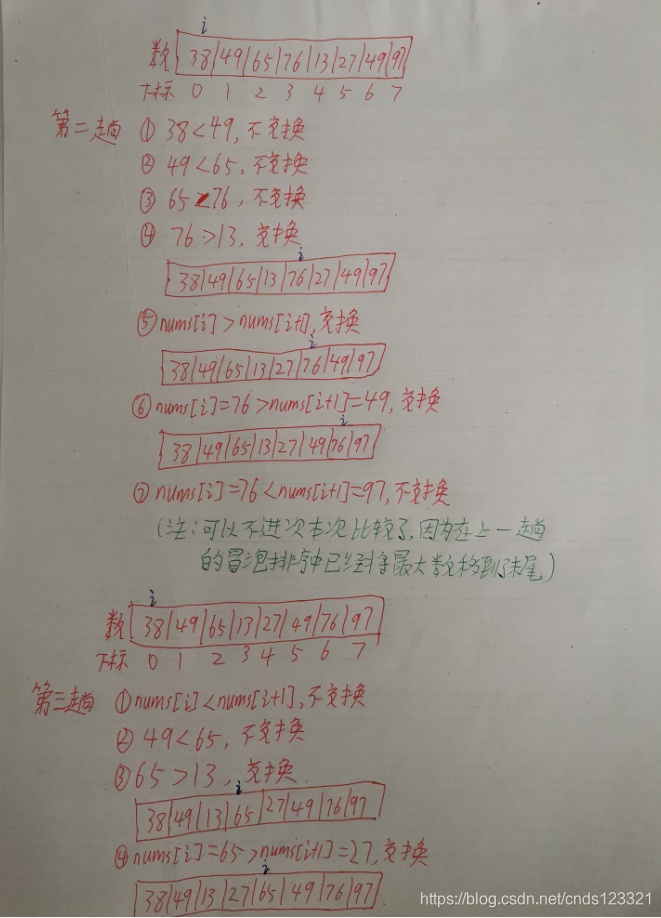 i
数 38|49|65|76|13|27|49|97
下标 0 1 2 3 4 5 6 7
第二趟 ① 38<49,不交换
② 49<65,不交换
③ 65<76,不交换
④ 76>13,交换
i
38|49|65|13|76|27|49|97
⑤ nums[i]>nums[i+1],交换
i
38|49|65|13|27|76|49|97
⑥ nums[i]=76>nums[i+1]=49,交换
i
38|49|65|13|27|49|76|97
⑦ nums[i]=76<nums[i+1]=97,不交换
(注:可以不进次本次比较了,因为在上一趟
的冒泡排序中已经将最大数移到了末尾)
i
数 38|49|65|13|27|49|76|97
下标 0 1 2 3 4 5 6 7
第三趟 ① nums[i]<nums[i+1],不交换
② 49<65,不交换
③ 65>13,交换.
i
38|49|13|65|27|49|76|97
④ nums[i]=65>nums[i+1]=27,交换
i
38|49|13|27|65|49|76|97
https://blog.csdn.net/cnds123321